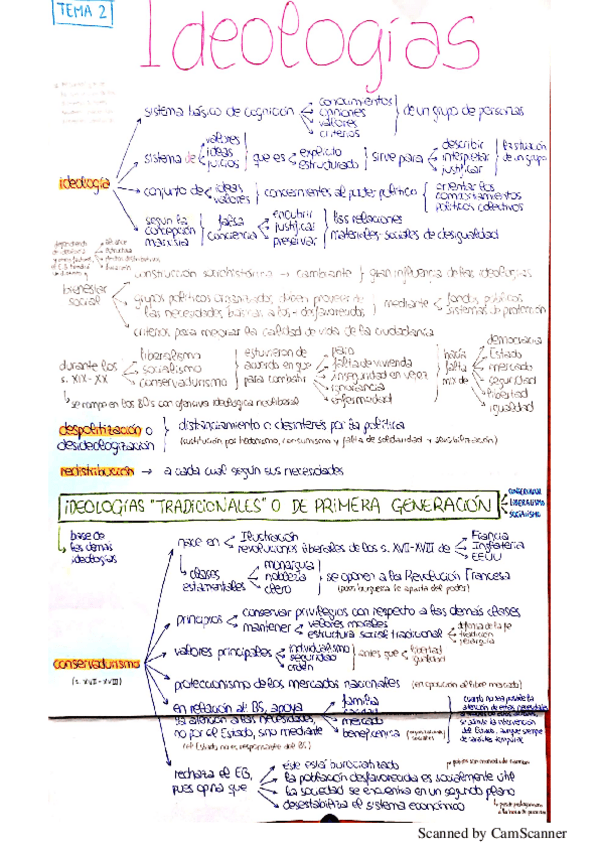 TEMA 2
Ideologías
sistema básico de cognición
conocimientos
opiniones
valores
criterios
de un grupo de personas
ideología
sistema de
valores
ideas
juicios
que es
explícito
estructurado
sirve para
describir
interpretar
justificar
la situación
de un grupo
conjunto de
ideas
valores
concernientes al poder político
orientar los
comportamientos
políticos colectivos
según la
concepción
marxista
falsa
conciencia
encubrir
justificar
preservar
las relaciones
materiales-sociales de desigualdad
bienestar
social
construcción sociohistórica → cambiante
gran influencia de las ideologías
grupos políticos organizados deben proveer de
las necesidades básicas a los + desfavorecidos
mediante
fondos públicos
sistemas de protección
criterios para mejorar la calidad de vida de la ciudadanía
durante los
s. XIX-XX
liberalismo
socialismo
conservadurismo
estuvieron de
acuerdo en que
para combatir
paro
falta de vivienda
inseguridad en vejez
ignorancia
enfermedad
hacía
falta
mix de
democracia
Estado
mercado
seguridad
libertad
igualdad
se rompe en los 80s con ofensiva ideológica neoliberal
despolitización o
desideologización
distanciamiento o desinterés por la política
(sustitución por hedonismo, consumismo y falta de solidaridad y sensibilización)
redistribución → a cada cual según sus necesidades
IDEOLOGÍAS "TRADICIONALES" O DE PRIMERA GENERACIÓN
CONSERVADUR.
LIBERALISMO
SOCIALISMO
base de
las demás
ideologías
conservadurismo
(s. XVII-XVIII)
nace en
Ilustración
revoluciones liberales de los s. XVII-XVIII de
Francia
Inglaterra
EEUU
clases
estamentales
monarquía
nobleza
clero
se oponen a la Revolución Francesa
(pues burguesía se aparta del poder)
principios
conservar privilegios con respecto a las demás clases
mantener
valores morales
estructura social tradicional
defensa de la fe
tradición
jerarquía
valores principales
individualismo
seguridad
orden
antes que
libertad
igualdad
proteccionismo de los mercados nacionales (en oposición al libre mercado)
en relación al BS, apoya
la atención a las necesidades,
no por el Estado, sino mediante
familia
caridad
mercado
beneficencia
(el Estado no es responsable del BS)
rechaza el EB,
pues opina que
éste está burocratizado
la población desfavorecida es socialmente útil
la sociedad se encuentra en un segundo plano
desestabiliza el sistema económico
Scanned by CamScanner